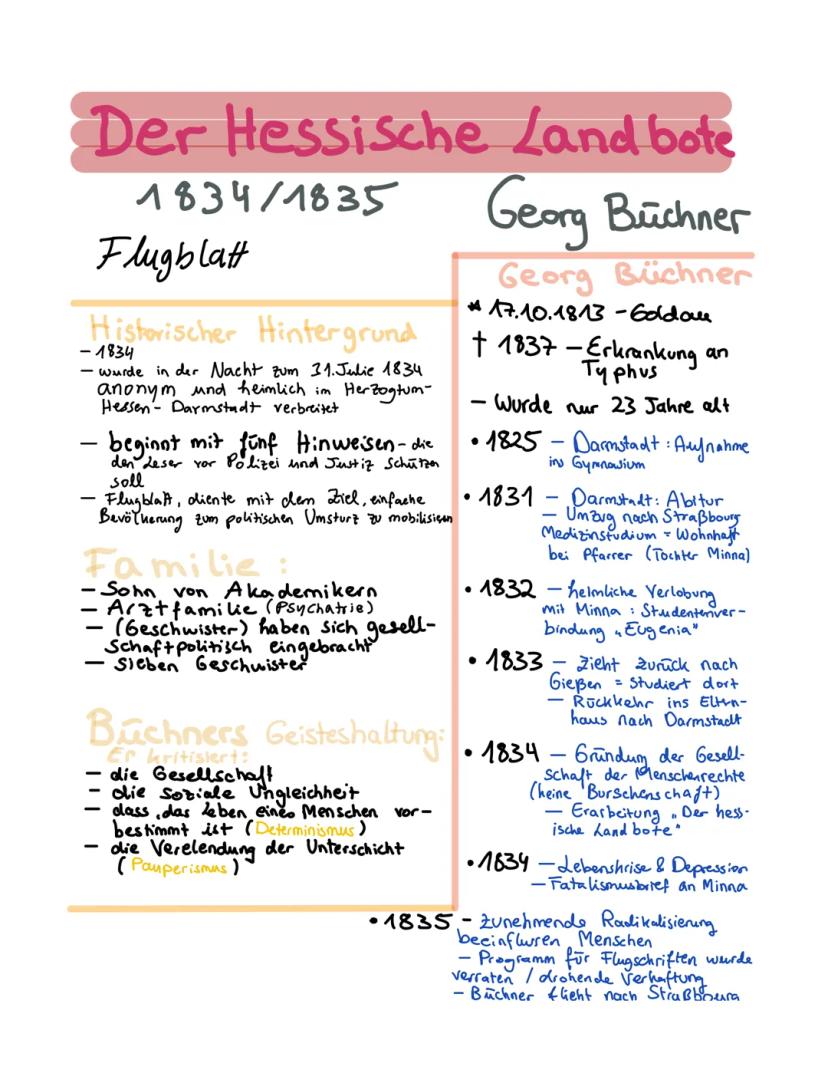 Der Hessische Landbote
1834/1835
Georg Büchner
Flugblatt
Historischer Hintergrund
- 1834
- wurde in der Nacht zum 31.Julie 1834
anonym und heimlich im Herzogtum-
Hessen- Darmstadt verbreitet
- beginnt mit fünf Hinweisen - die
den Leser vor Polizei und Justiz schützen
soll
- Flugblatt, diente mit dem Ziel, einfache
Bevölkerung zum politischen Umsturz zu mobilisieren
Familie :
- Sohn von Akademikern
- Arztfamilie (Psychatrie)
- (Geschwister) haben sich gesell-
schaftpolitisch eingebracht
- sieben Geschwister
Büchners Geisteshaltung:
Er kritisiert:
- die Gesellschaft
- die soziale Ungleichheit
- dass das Leben eines Menschen vor-
bestimmt ist (Determinismus)
- die Verelendung der Unterschicht
(Pauperismus)
Georg Büchner
* 17.10.1813 - Goldau
† 1837 - Erkrankung an
Typhus
- Wurde nur 23 Jahre alt
• 1825 - Darmstadt : Aufnahme
ins Gymnasium
• 1831 - Darmstadt: Abitur
- Umzug nach Straßbourg
Medizinstudium = Wohnhaft
bei Pfarrer (Tochter Minna)
• 1832 - heimliche Verlobung
mit Minna : Studentenver-
bindung „Eugenia"
• 1833 - zieht zurück nach
Gießen = studiert dort
- Rückkehr ins Eltern-
haus nach Darmstadt
• 1834 - Gründung der Gesell-
schaft der Menschenrechte
(keine Burschenschaft)
- Erarbeitung „Der hess-
ische Landbote"
• 1834 - Lebenskrise & Depression
- Fatalismusbrief an Minna
• 1835 - zunehmende Radikalisierung
beeinflussen Menschen
- Programm für Flugschriften wurde
verraten / drohende Verhaftung
- Büchner flieht nach Straßbourg